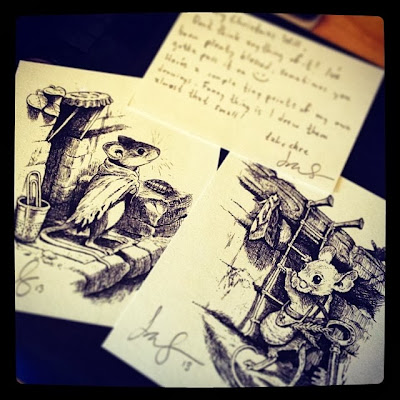 Merry Christmas Will.
Don't think anything of it! I've
been plenty blessed, sometimes you
gotta pass it on
Here's a couple tiny prints of my own
drawings. Funny thing is I drew them
almost that small!
Take care
13
13